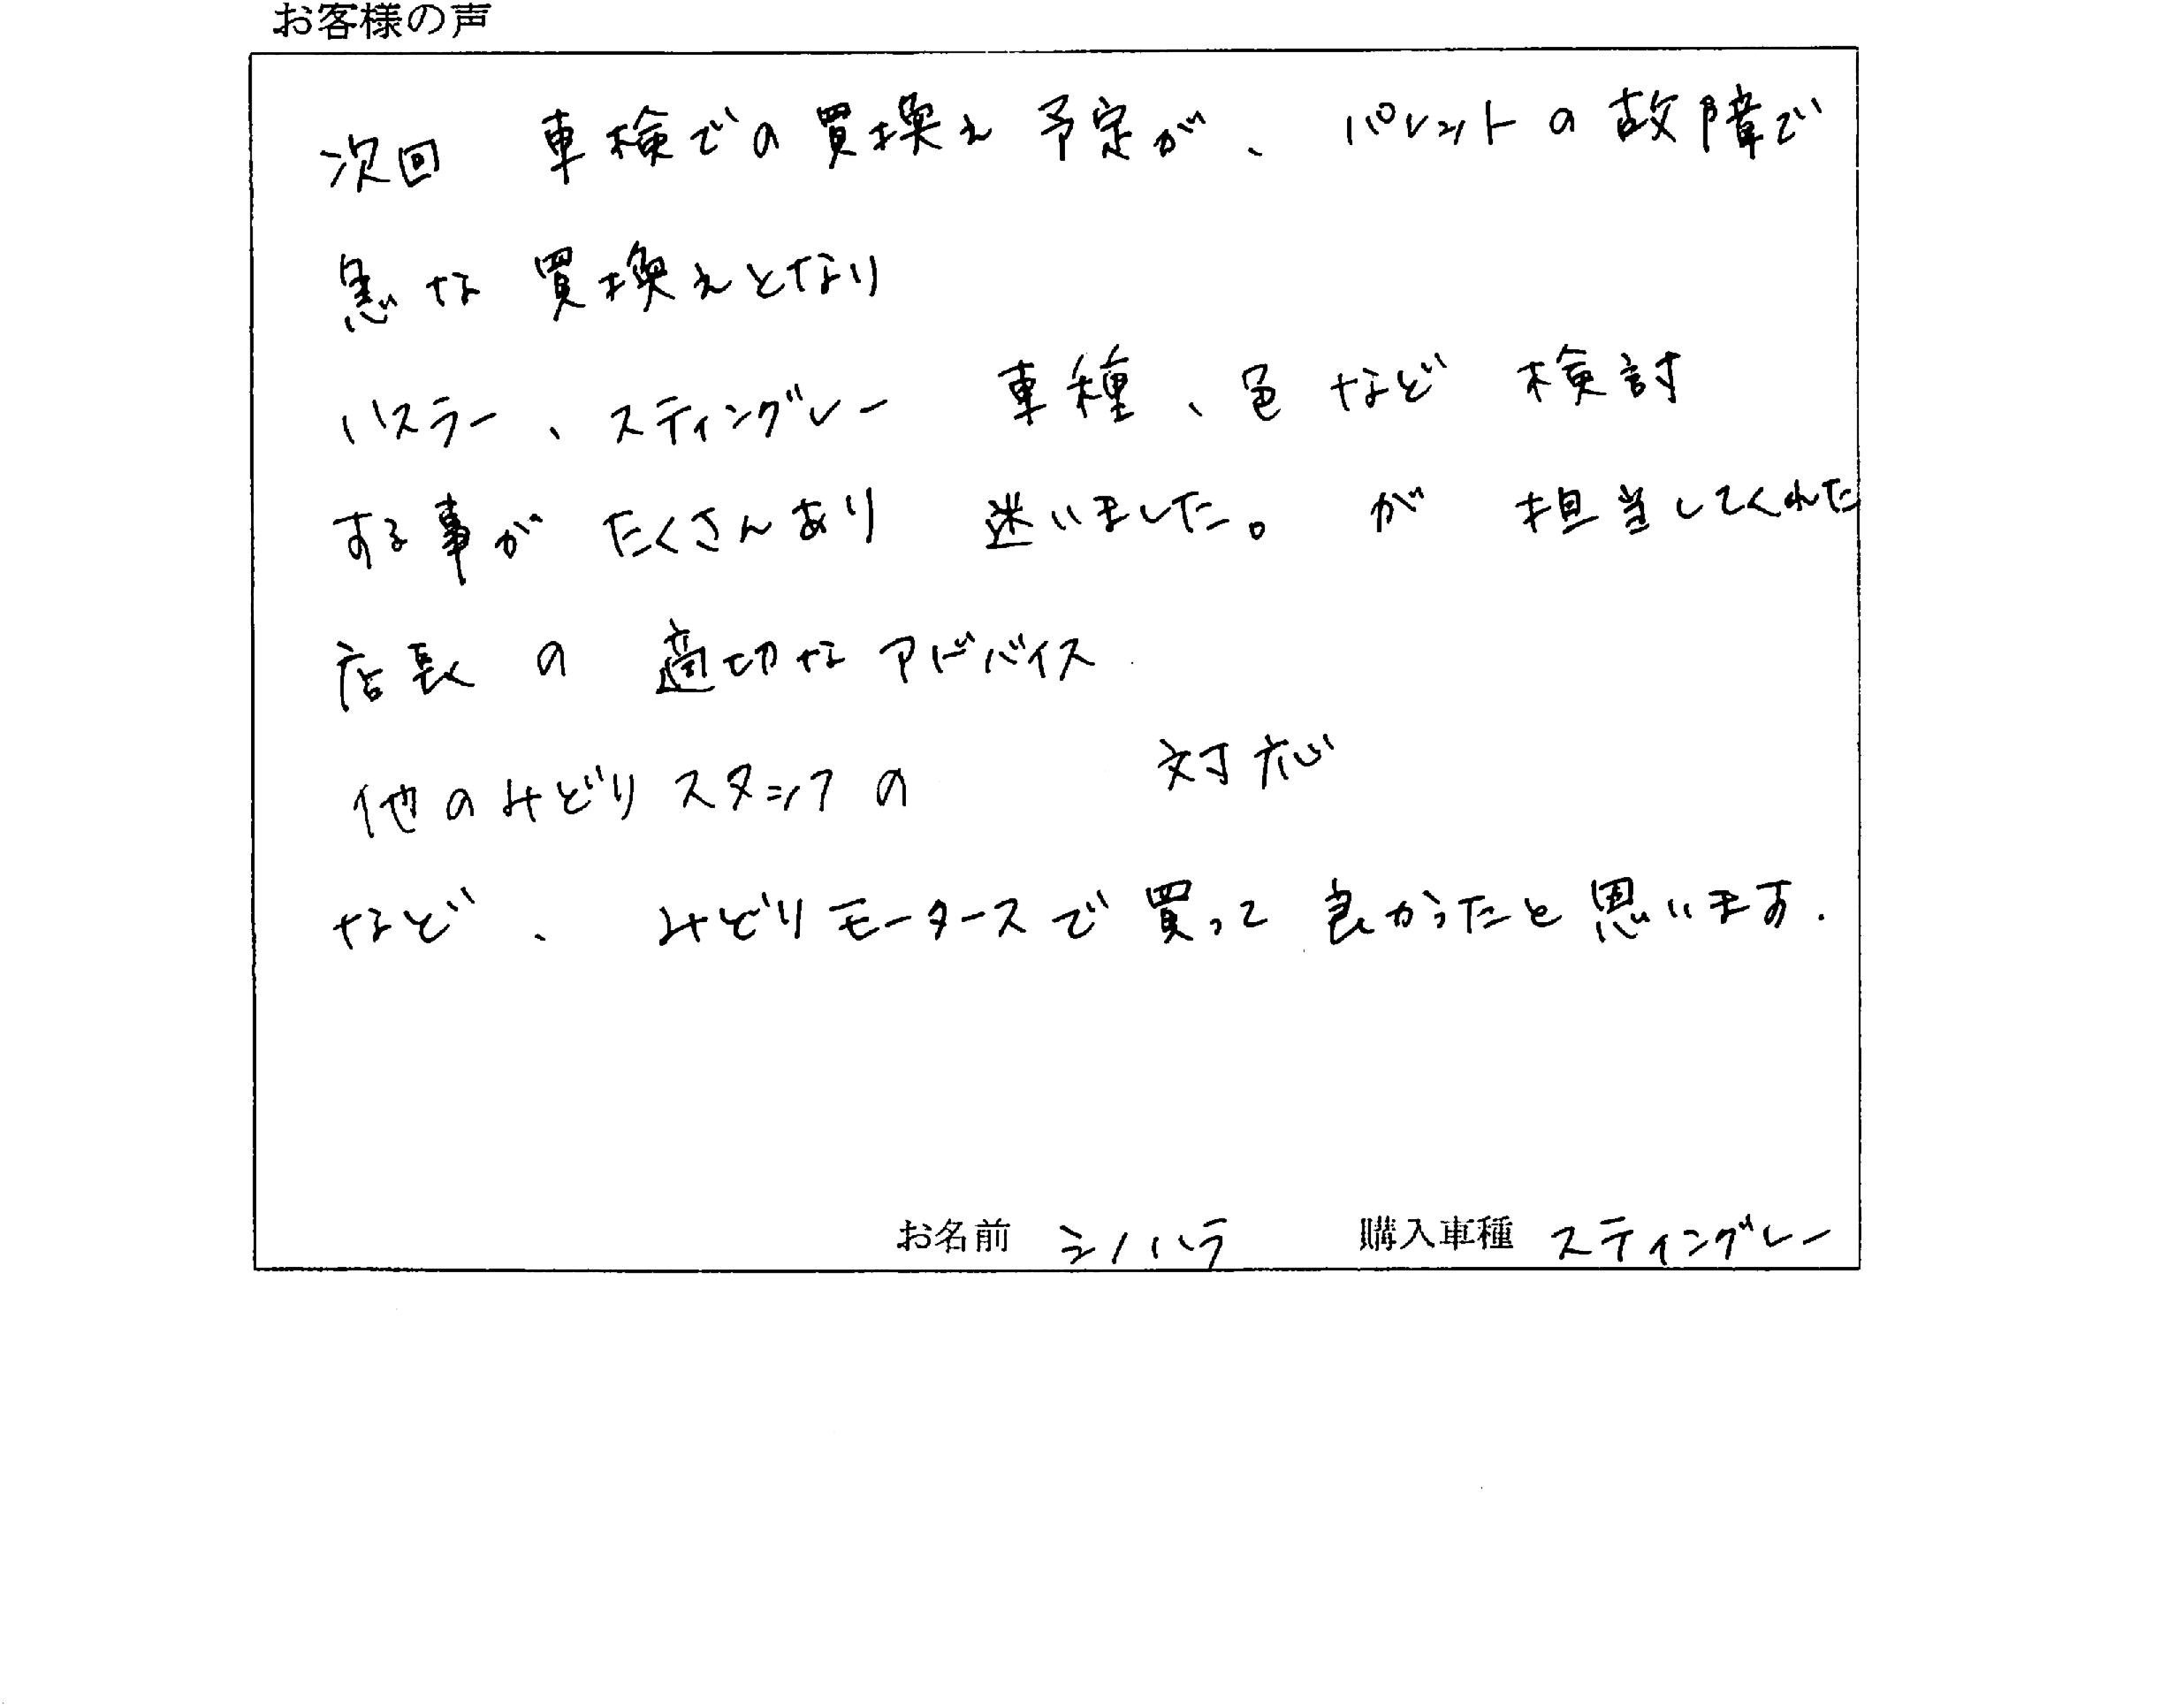 お客様の声
次回 車検での買換え予定が、パレットの故障で
急な買換えとなり
ハスラー、スティングレー 車種、色など検討
する事がたくさんあり 迷いました。が 担当してくれた
店長の適切なアドバイス
他のみどりスタッフの 対応
など、みどりモータースで買って良かったと思います.
お名前 シノハラ 購入車種 スティングレー